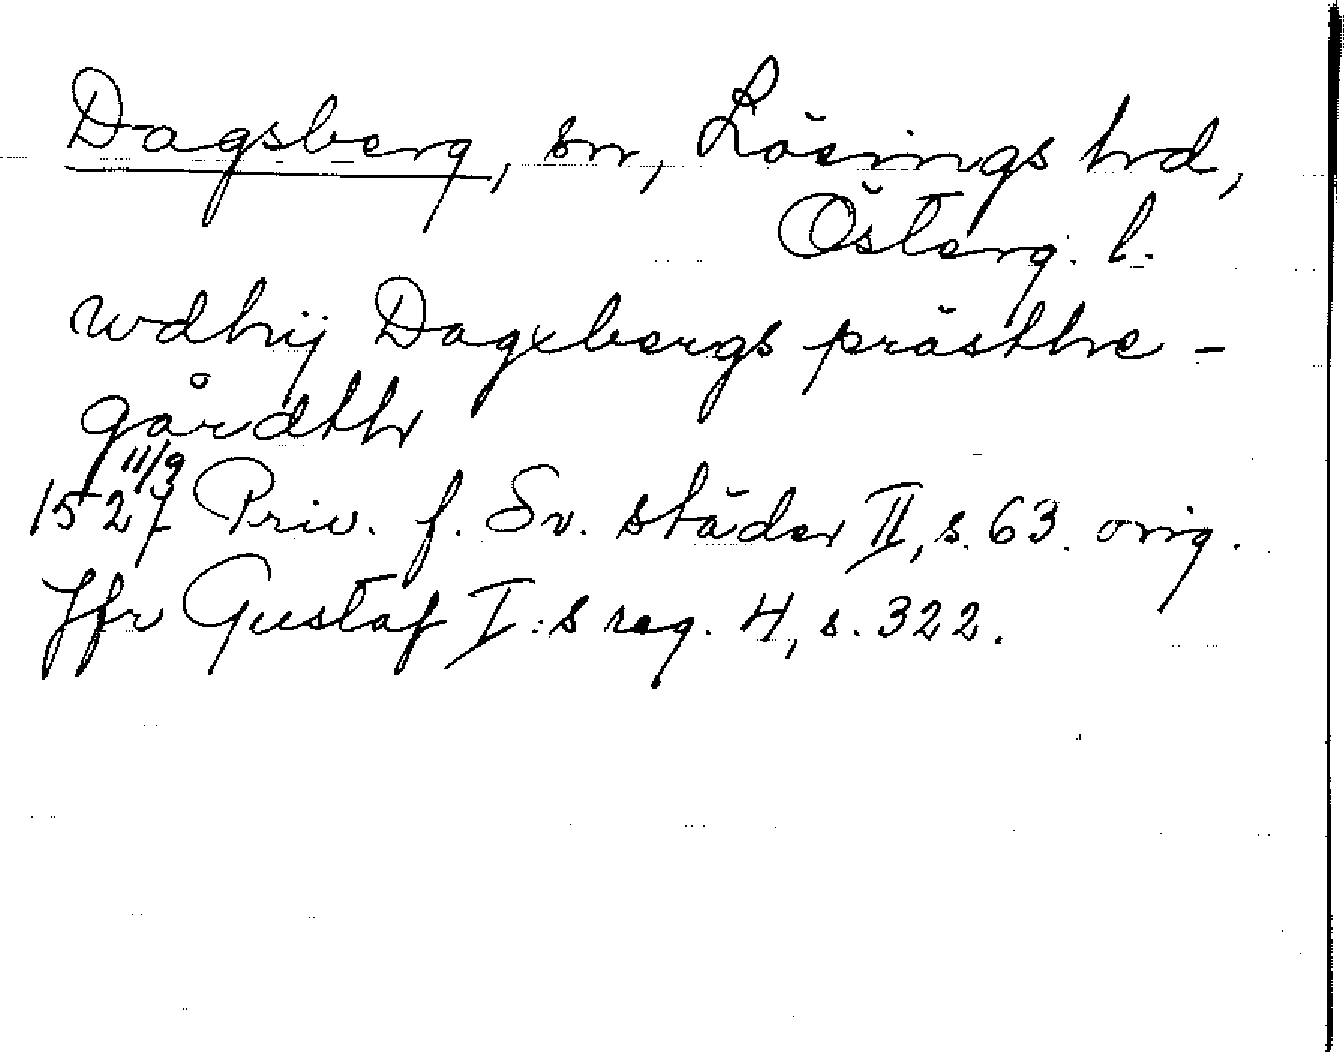 Dagsberg, sn, Lösings hrd,
Österg. l.
wdhij Dagxbergs prästhe-
gårdth
11/9
1527 Priv. f. Sv. städer II, s. 63. orig.
Jfr Gustaf I:s reg. 4, s. 322.